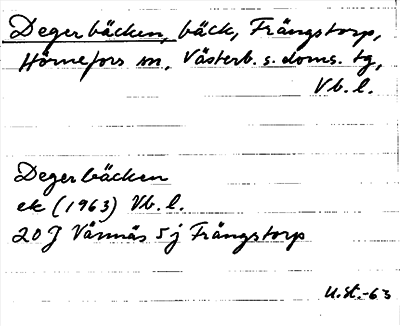 Degerbäcken, bäck, Frängstorp,
Hörnefors sn, Västerb. s. doms. tg,
Vb. l.
Degerbäcken
ek (1963) Vb. l.
20J Vännäs 5j Frängstorp
U.St.-63